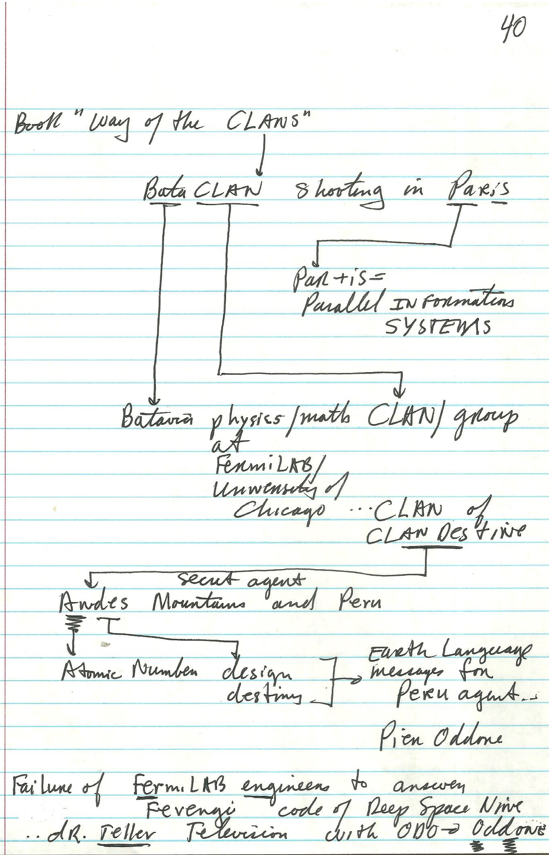 40
Book "Way of the CLANS"
Bata CLAN shooting in Paris
Par + is =
Parallel INFormation
SYSTEMS
Batavia physics/math CLAN/group
at
FermiLAB/
University of
Chicago ...CLAN of
CLANDestine
secret agent
Andes Mountains and Peru
Atomic Number design
destiny
Earth Language
messages for
Peru agent...
Pier Oddone
Failure of FermiLAB engineers to answer
Fevengi code of Deep Space Nine
..dR. Teller Television with ODO→Oddone